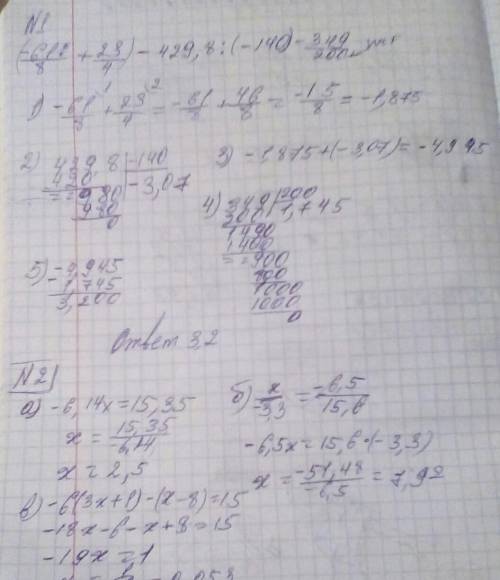 N1
(-61/8 + 23/4) - 429,8 : (-140) - 349/200
1) -61/8 + 23/4 = -61/8 + 46/8 = -15/8 = -1,875
2) 429 8 | -140
420 | -3,07
980
980
0
3) -1,875+(-3,07)= -4,945
4) 349 | 200
200 | 1,745
1490
1400
900
800
1000
1000
0
5) -4,945
1,745
3,200
Ответ 3,2
N2
а) -6,14x=15,35
x = 15,35/6,14
x = 2,5
б) x/-3,3 = -6,5/15,6
-6,5x=15,6·(-3,3)
x = -51,48/-6,5 = 7,92
в) -6(3x+1)-(x-8)=15
-18x-6-x+8=15
-19x=1